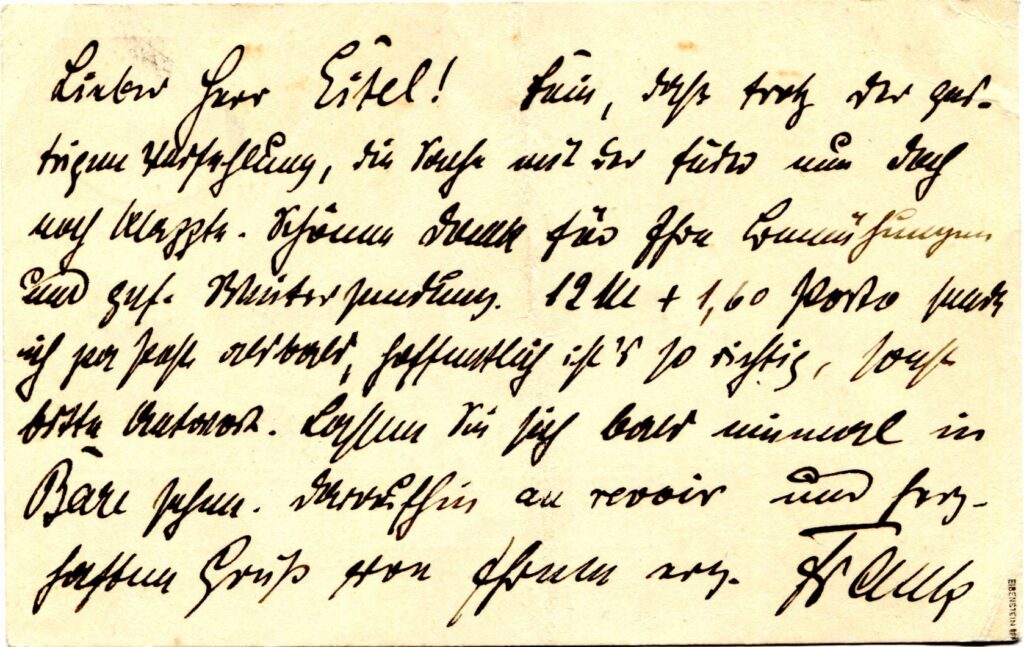 Lieber Herr Eitel! Fein, dass trotz der ges-
trigen Verfehlung, die Sache mit der Feder nun doch
noch klappte. Schönen Dank für Ihre Bemühungen
und gef. Weitersendung. 12 M + 1,60 Porto sende
ich per Post alsbald, hoffentlich ist's so richtig, sonst
bitte Antwort. Lassen Sie sich bald einmal in
sehen. Daraufhin au revoir und herz-
haften Gruß von Ihrem erg.
EIBENSTEIN